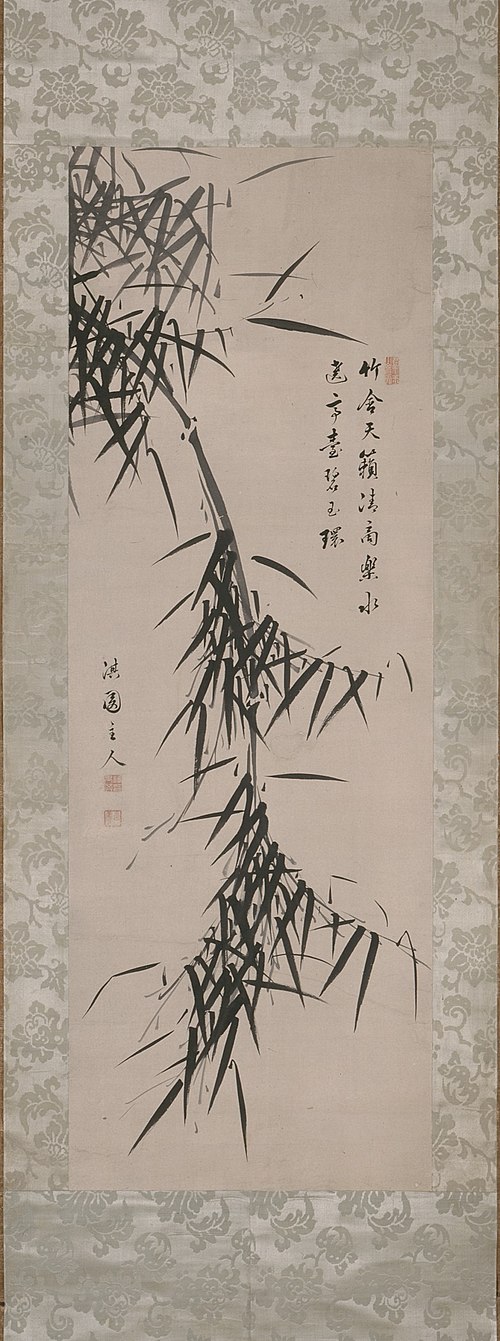 竹含天籟清商樂水
遶亭臺碧玉環
淇園主人